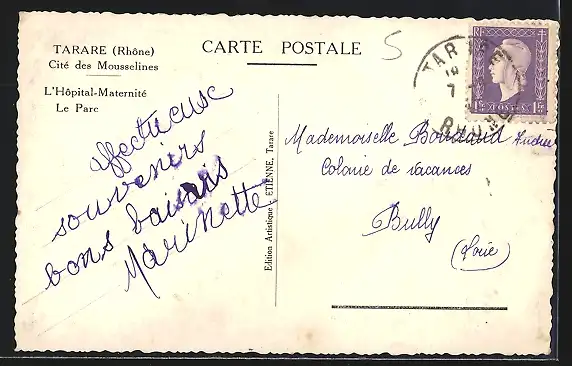 TARARE (Rhône)
Cité des Mousselines
L'Hôpital-Maternité
Le Parc
CARTE POSTALE
5
TARARE
7
RHONE
POSTES
affectueuse
souvenirs
bons baisers
Marinette
Edition Artistique ETIENNE, Tarare
Mademoiselle Andrée
Colonie de vacances
Bully
(Loire)